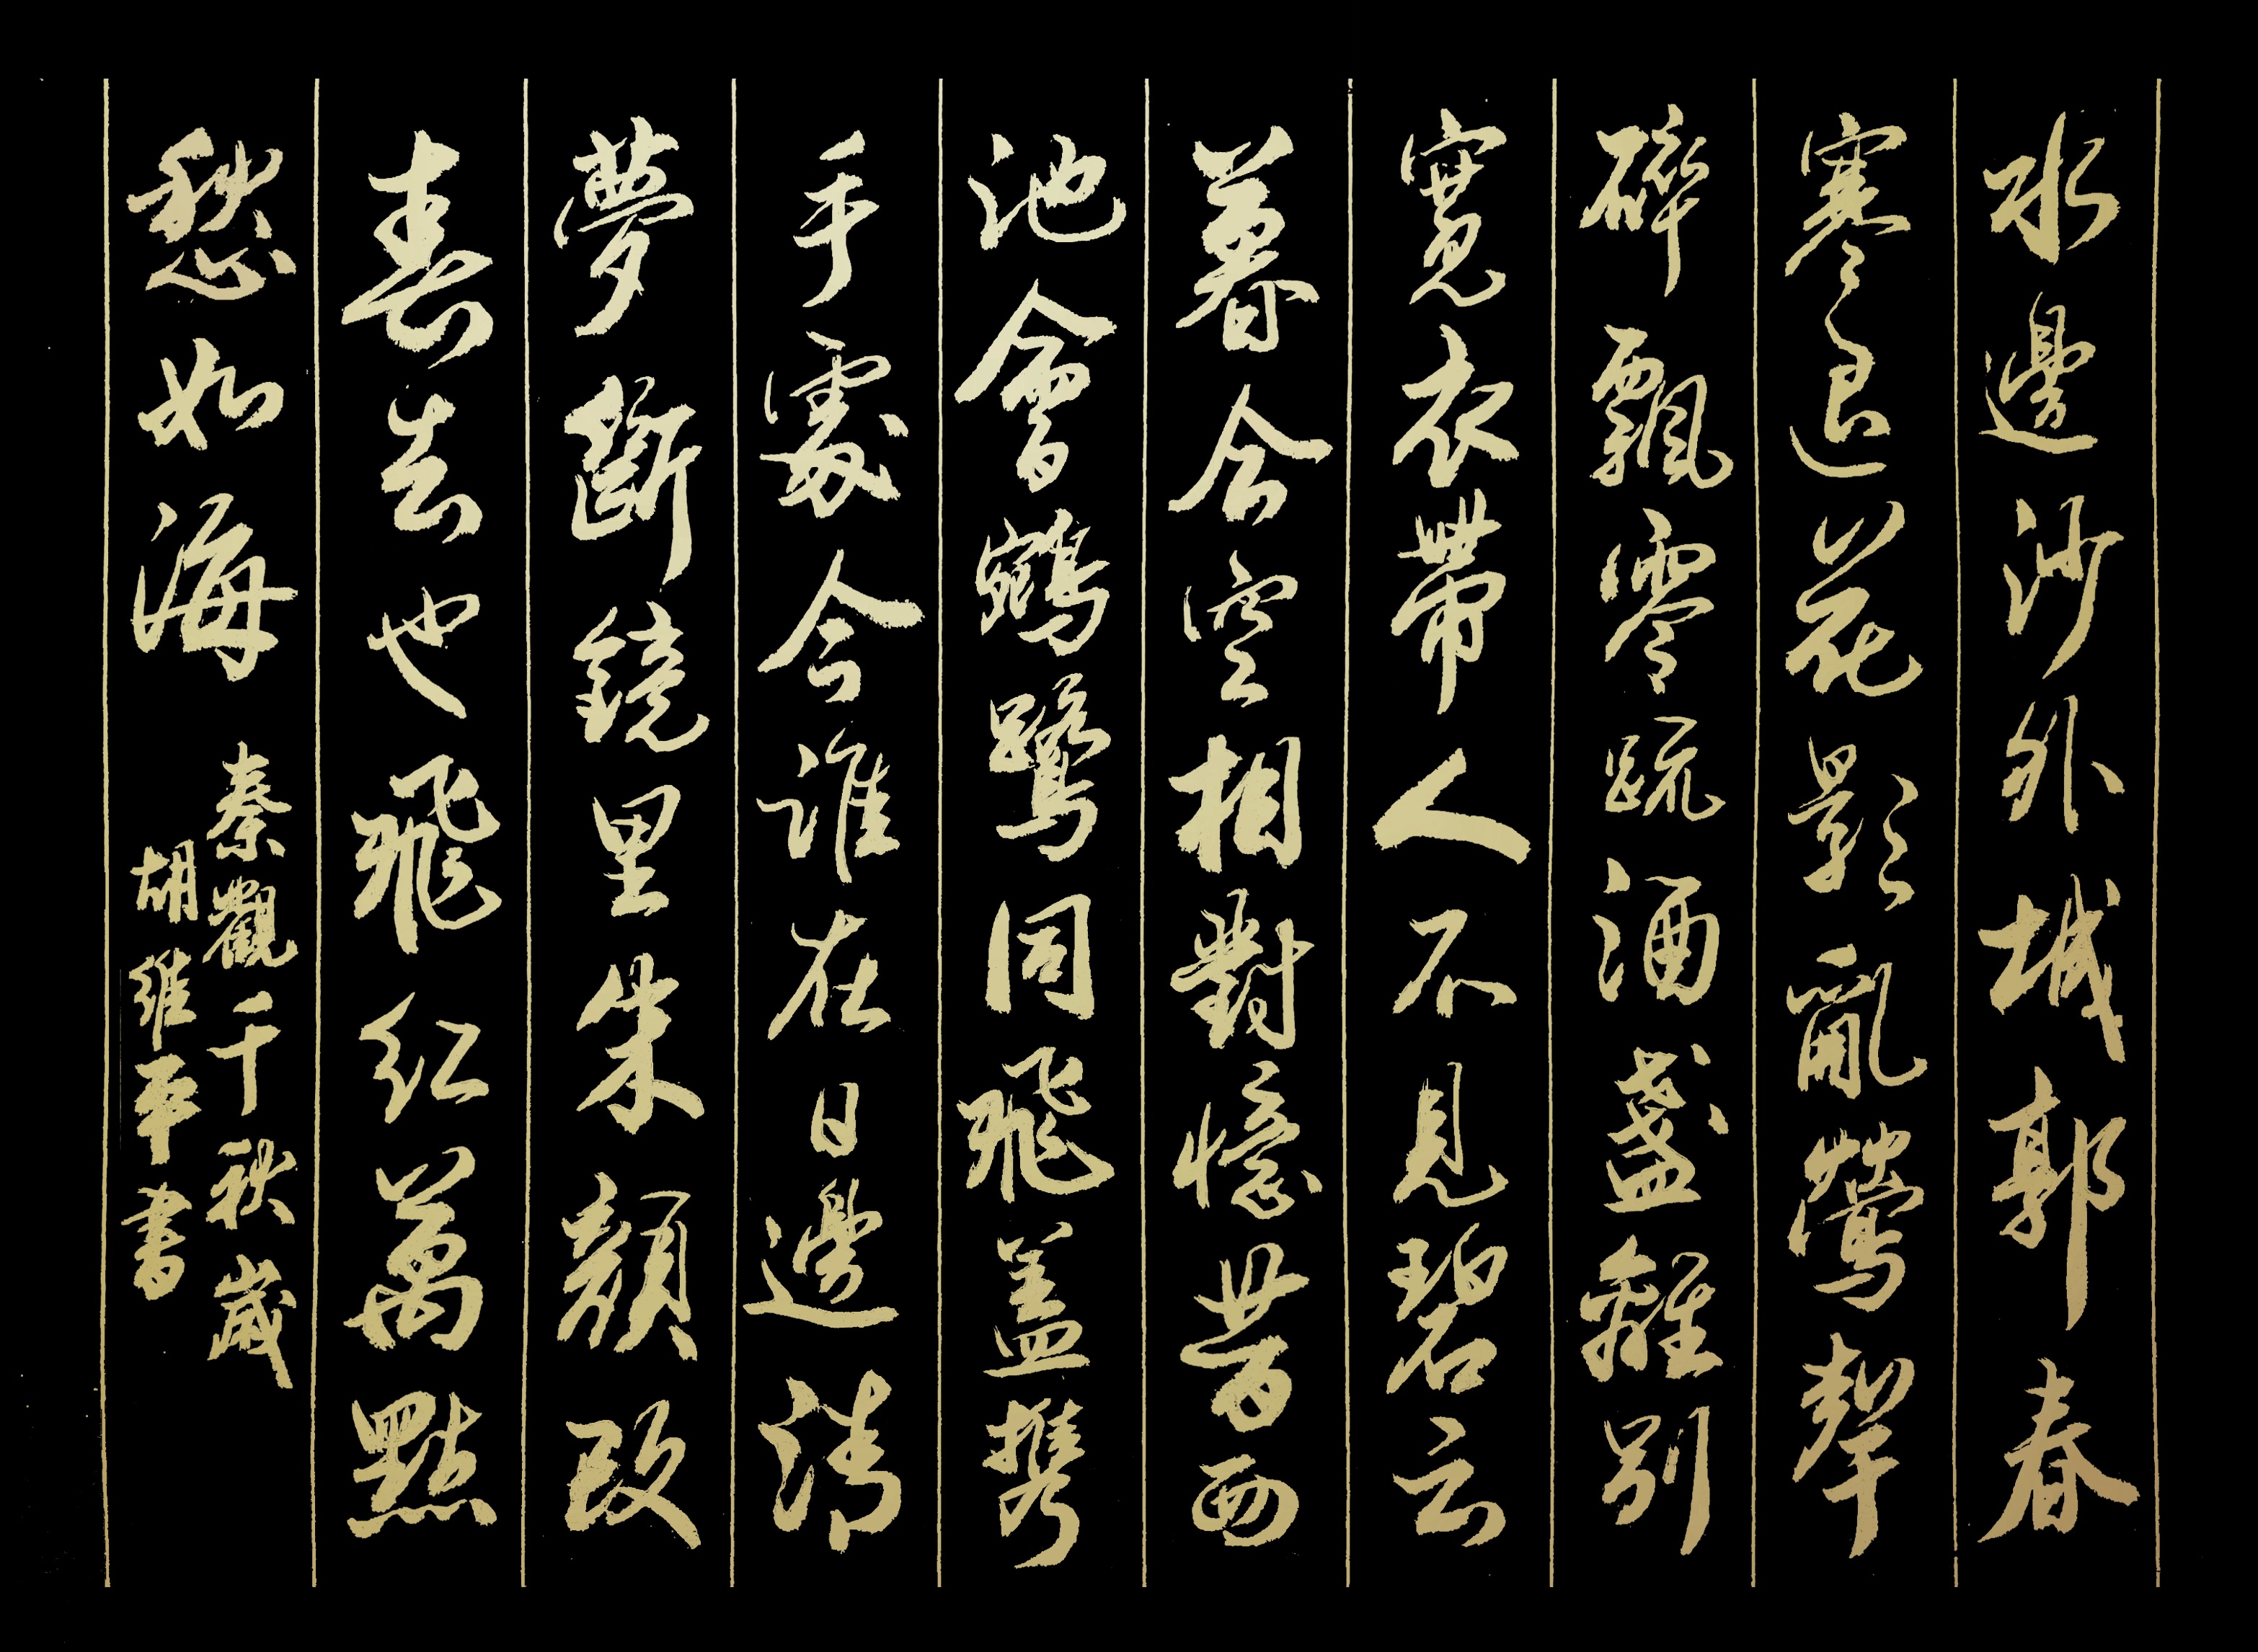 水邊沙外城郭春
寒退花影亂鶯聲
碎飄零疏酒盞離別
寬衣帶人不見碧云
暮合空相對憶昔西
池會鵷鷺同飛蓋携
手處今誰在日邊清
夢斷鏡里朱顏改
春去也飛紅萬點
愁如海
秦觀千秋歲
胡維平書